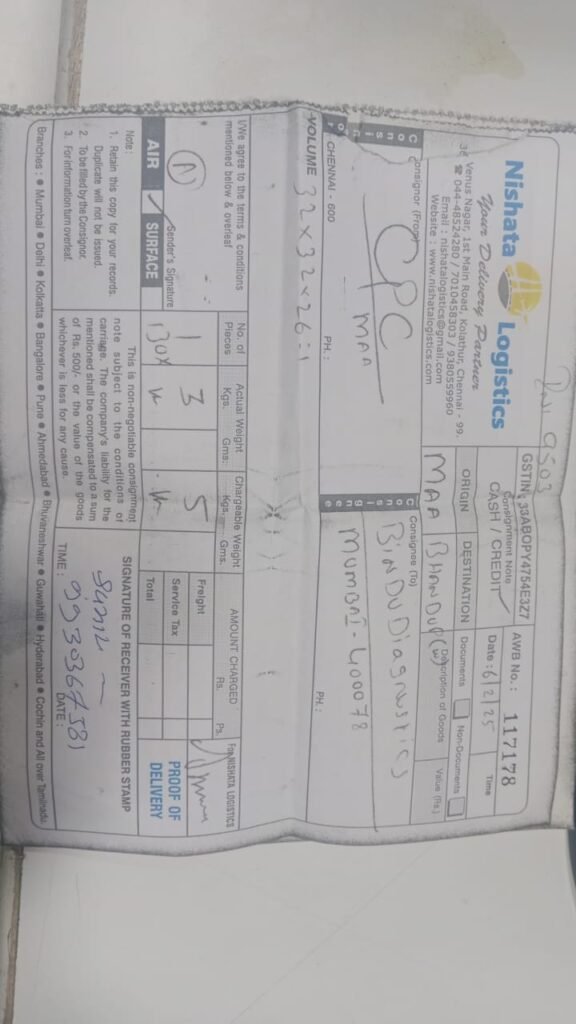 DN 9503
Nishata Logistics
Your Delivery Partner
Venus Nagar, 1st Main Road, Kolathur, Chennai - 99.
☎ 044-48524280 / 7010458303 / 9380559960
Email : nishatalogistics@gmail.com
Website : www.nishatalogistics.com
GSTIN : 33ABOPY4754E3Z7
Consignment Note
CASH / CREDIT
AWB No. : 117178
Date : 6/2/25
Time
ORIGIN
DESTINATION
Documents
Non-Documents
MAA
BHANDUP (W)
Description of Goods
Value (Rs.)
Consignor
Consignor (From)
CPC
MAA
CHENNAI - 600
PH. :
Consignee
Consignee (To)
BINDU DIAGNOSTICS
MUMBAI - 400078
PH. :
VOLUME 32 X 32 X 26 = 1
I/We agree to the terms & conditions
mentioned below & overleaf
Sender's Signature
AIR
SURFACE
No. of
Pieces
1
BOX
Actual Weight
Kgs. Gms.
3
Chargeable Weight
Kgs. Gms.
5
AMOUNT CHARGED
Rs. Ps.
Freight
Service Tax
Total
For NISHATA LOGISTICS
PROOF OF
DELIVERY
Note :
1. Retain this copy for your records.
Duplicate will not be issued.
2. To be filled by the Consignor.
3. For information turn overleaf.
This is non-negotiable consignment
note subject to the conditions of
carriage. The company's liability for the
mentioned shall be compensated to a sum
of Rs. 500/- or the value of the goods
whichever is less for any cause.
SIGNATURE OF RECEIVER WITH RUBBER STAMP
TIME :
9930367581
DATE :
Branches : ● Mumbai ● Delhi ● Kolkatta ● Bangalore ● Pune ● Ahmedabad ● Bhuvaneshwar ● Guwahati ● Hyderabad ● Cochin and All over Tamilnadu